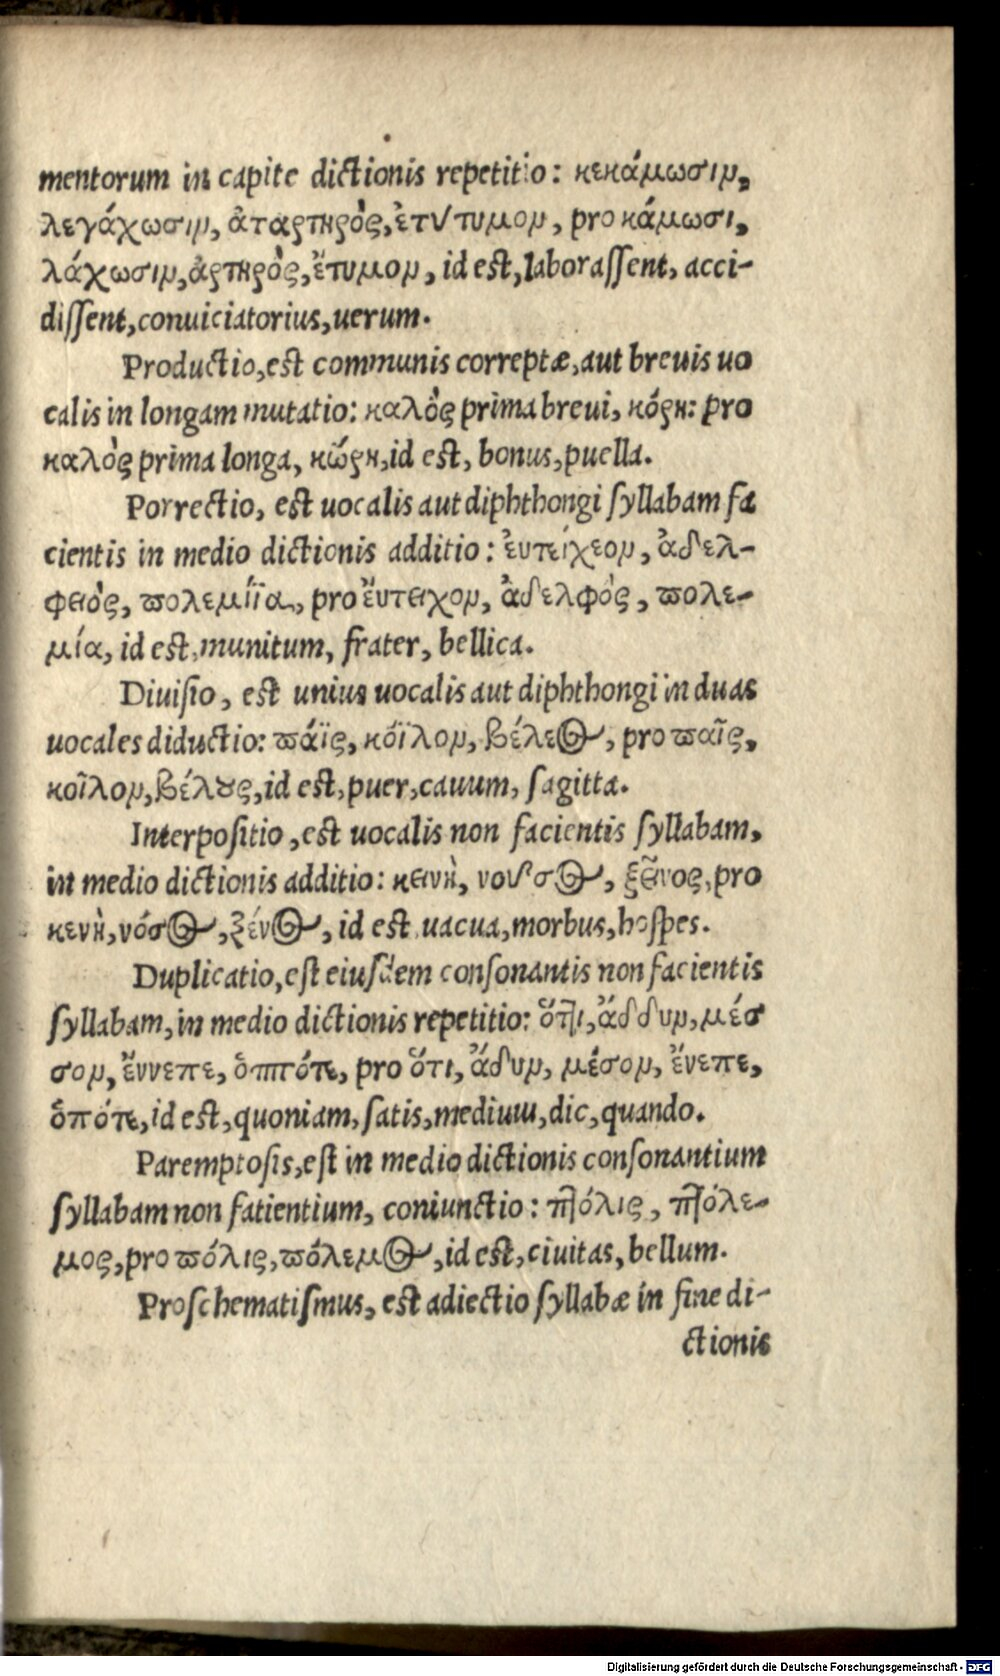 mentorum in capite dictionis repetitio: κεκάμωσιν,
λεγάχωσιν, ἀταρτηρὸς, ἐτύτυμον, pro κάμωσι,
λάχωσιν, ἀρτηρὸς, ἔτυμον, id est, laborassent, acci-
dissent, conuiciatorius, uerum.
Productio, est communis correptæ, aut breuis uo
calis in longam mutatio: καλὸς prima breui, κόρη: pro
καλὸς prima longa, κώρη, id est, bonus, puella.
Porrectio, est uocalis aut diphthongi syllabam fa
cientis in medio dictionis additio: ἐυτείχεον, ἀδελ-
φειὸς, πολεμίϊα, pro ἔυτειχον, ἀδελφὸς, πολε-
μία, id est, munitum, frater, bellica.
Diuisio, est unius uocalis aut diphthongi in duas
uocales diductio: πάϊς, κόϊλον, βέλεος, pro παῖς,
κοῖλον, βέλους, id est, puer, cauum, sagitta.
Interpositio, est uocalis non facientis syllabam,
in medio dictionis additio: κεινὴ, νοῦσος, ξεῖνος, pro
κενὴ, νόσος, ξένος, id est uacua, morbus, hospes.
Duplicatio, est eiusdem consonantis non facientis
syllabam, in medio dictionis repetitio: ὅττι, ἄδδυν, μέσ
σον, ἔννεπε, ὁππότε, pro ὅτι, ἄδυν, μέσον, ἔνεπε,
ὁπότε, id est, quoniam, satis, medium, dic, quando.
Paremptosis, est in medio dictionis consonantium
syllabam non fatientium, coniunctio: πτόλις, πτόλε-
μος, pro πόλις, πόλεμος, id est, ciuitas, bellum.
Proschematismus, est adiectio syllabæ in fine di-
ctionis
Digitalisierung gefördert durch die Deutsche Forschungsgemeinschaft - DFG